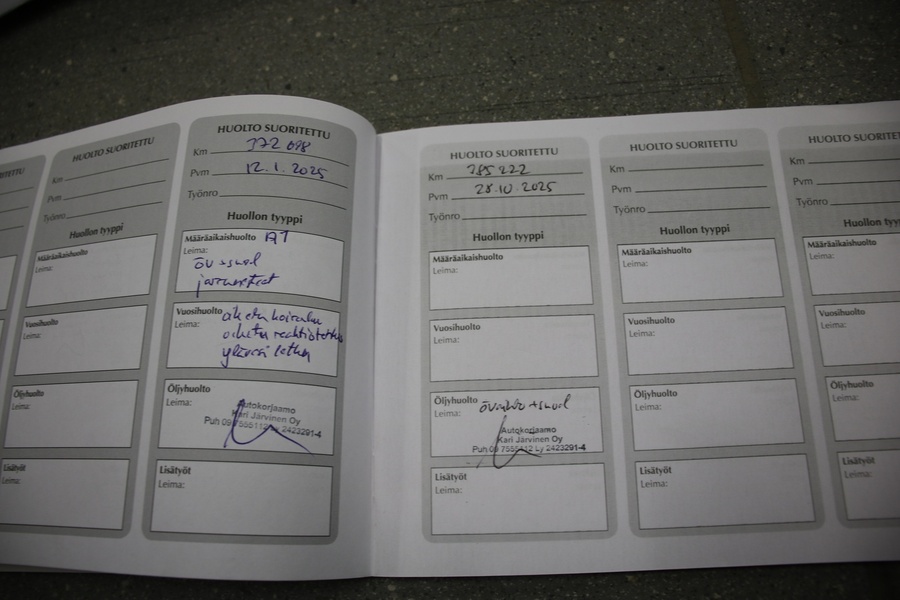 HUOLTO SUORITETTU
Km
Pvm
Työnro
Huollon tyyppi
Määräaikaishuolto
Leima:
Vuosihuolto
Leima:
Öljyhuolto
Leima:
Lisätyöt
Leima:
HUOLTO SUORITETTU
Km 372 098
Pvm 12.1.2025
Työnro
Huollon tyyppi
Määräaikaishuolto A1
Leima:
öv + suod
jarrunesteet
Vuosihuolto
Leima:
Öljyhuolto
Leima:
Autokorjaamo
Kari Järvinen Oy
Puh 09 7555112 Ly 2423291-4
Lisätyöt
Leima:
HUOLTO SUORITETTU
Km 385 222
Pvm 28.10.2025
Työnro
Huollon tyyppi
Määräaikaishuolto
Leima:
Vuosihuolto
Leima:
Öljyhuolto
Leima:
Autokorjaamo
Kari Järvinen Oy
Puh 09 7555112 Ly 2423291-4
Lisätyöt
Leima:
HUOLTO SUORITETTU
Km
Pvm
Työnro
Huollon tyyppi
Määräaikaishuolto
Leima:
Vuosihuolto
Leima:
Öljyhuolto
Leima:
Lisätyöt
Leima:
HUOLTO
Km
Pvm
Työnro
Huollon
Määräaikaishuolto
Leima:
Vuosihuolto
Leima:
Öljyhuolto
Leima:
Lisätyöt
Leima: